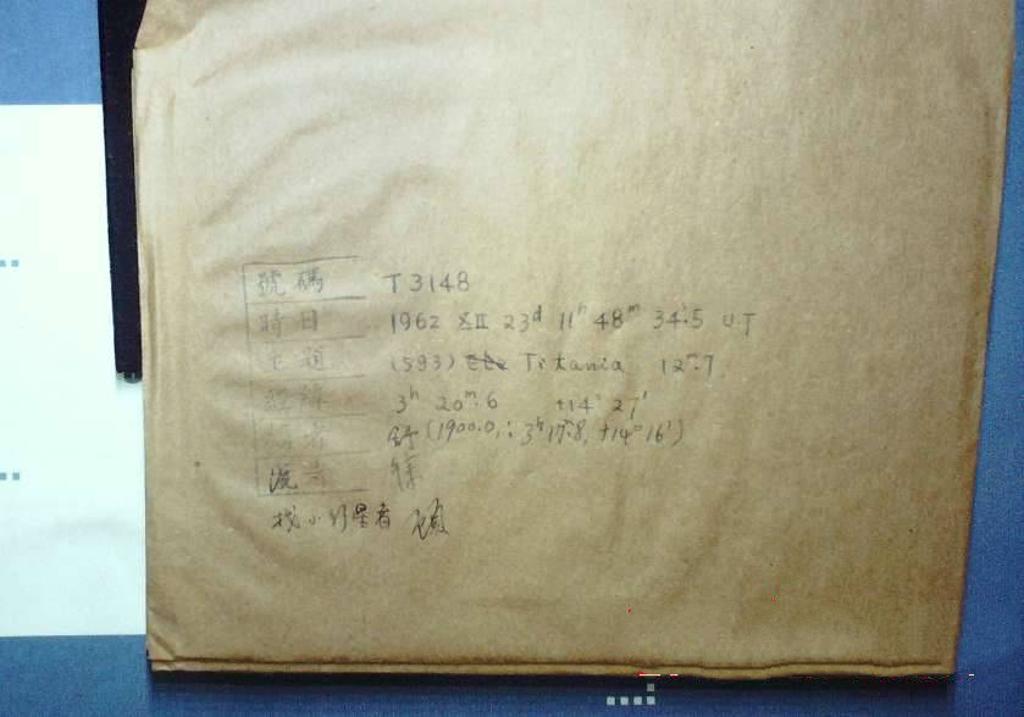 號碼 T3148
時日 1962 XII 23d 11h 48m 34s.5 U.T
主題 (593) Titania 12m.7
經緯 3h 20m.6 +14° 27'
者 舒 (1900.0,: 3h 17m.8, +14° 16')
徐
找小行星者